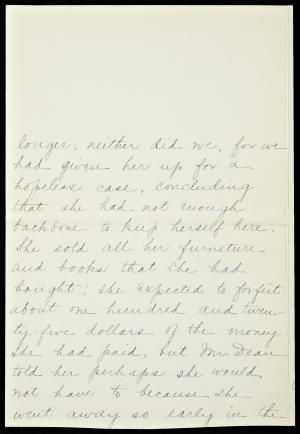 longer; neither did we, for we
had given her up for a
hopeless case, concluding
that she had not enough
backbone to keep herself here.
She sold all her furniture
and books that she had
bought; she expected to forfeit
about one hundred and twen-
ty-five dollars of the money
she had paid, but Mr. Dean
told her perhaps she would
not have to because she
went away so early in the